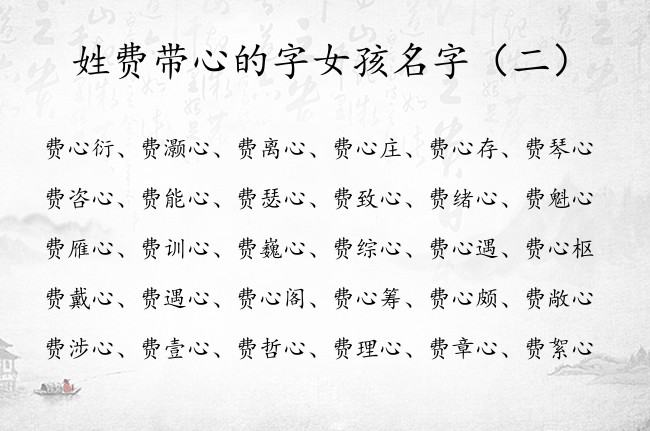 姓费带心的字女孩名字（二）
费心衍、费灏心、费离心、费心庄、费心存、费琴心
费咨心、费能心、费瑟心、费致心、费绪心、费魁心
费雁心、费训心、费巍心、费综心、费心遇、费心枢
费戴心、费遇心、费心阁、费心筹、费心颇、费敞心
费涉心、费壹心、费哲心、费理心、费章心、费絮心